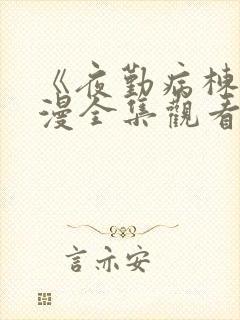 《夜勤病棟
漫全集觀看
言亦安